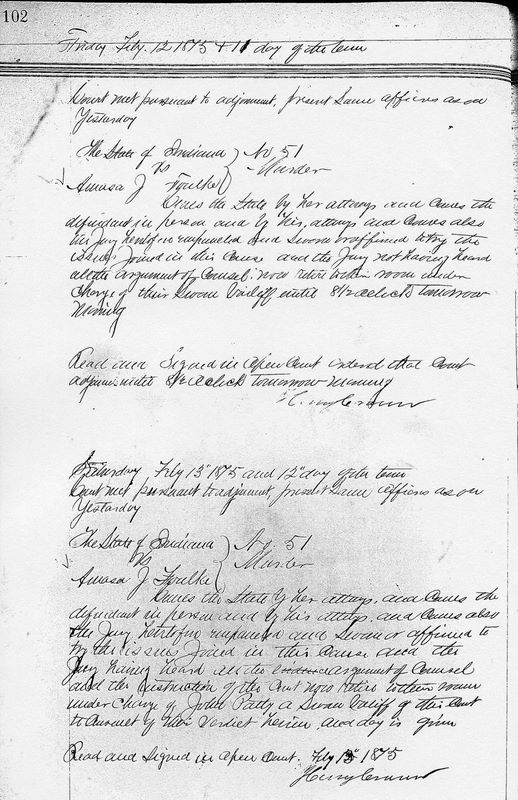 102
Friday Feby. 12 1875 & 11 day of the term
Court met pursuant to adjornment, present Same officers as on
Yesterday
The State of Indiana } No 51
Vs } Murder
Amosa J Foulke
Comes the State by her attorneys and Comes the
defendant in person and by his attorneys and Comes also
the Jury heretofore empaneled and Sworn or affirmed to try the
issues Joined in this Cause and the Jury not having heard
all the argument of Counsel. now retire to their room under
Charge of their Sworn Bailiff until 8½ oclock tomorrow
Morning
Read and Signed in Open Court ordered that Court
adjourn until 8½ oclock tomorrow morning
Saturday Feby 13" 1875 and 12" day of the term
Court met pursuant to adjornment, present Same officers as on
Yesterday
The State of Indiana } No. 51
Vs } Murder
Amosa J Foulke
Comes the State by her attorneys. and Comes the
defendant in person and by his attorneys. and Comes also
the Jury heretofore empaneled and Sworn or affirmed to
try the issues Joined in this Cause and the
Jury having heard all the argument of Counsel
and the Instruction of the Court now retire to their room
under Charge of John Patty a Sworn Bailiff of this Court
to Consult of their Verdict herein and day is given
Read and Signed in Open Court. Feby 13" 1875